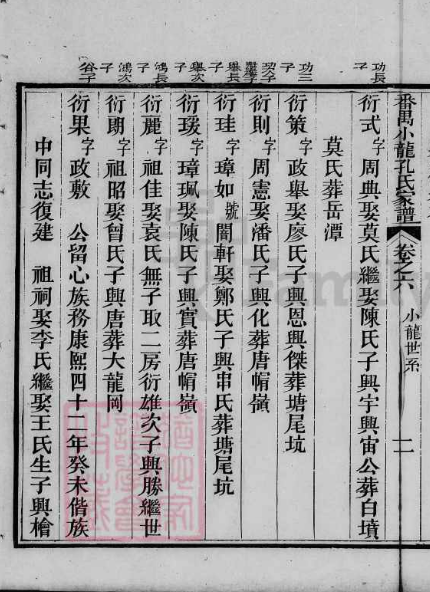 番禺小龍孔氏家譜 卷之六 小龍世系 十一
功長子
衍式字周典娶莫氏繼娶陳氏子興宇興宙公葬白墳
莫氏葬岳潭
功三子
衍策字政舉娶廖氏子興恩興傑葬塘尾坑
衍則字周憲娶潘氏子興化葬唐帽嶺
舉長子
衍珪字璋如號闇軒娶鄭氏子興串氏葬塘尾坑
舉次子
衍瑗字璋珮娶陳氏子興實葬唐帽嶺
鴻長子
衍麗字祖佳娶袁氏無子取二房衍雄次子興勝繼世
鴻次子
衍朗字祖昭娶曾氏子興唐葬大龍岡
衍果字政敷公留心族務康熙四十二年癸未偕族
中同志復建祖祠娶李氏繼娶王氏生子興檜